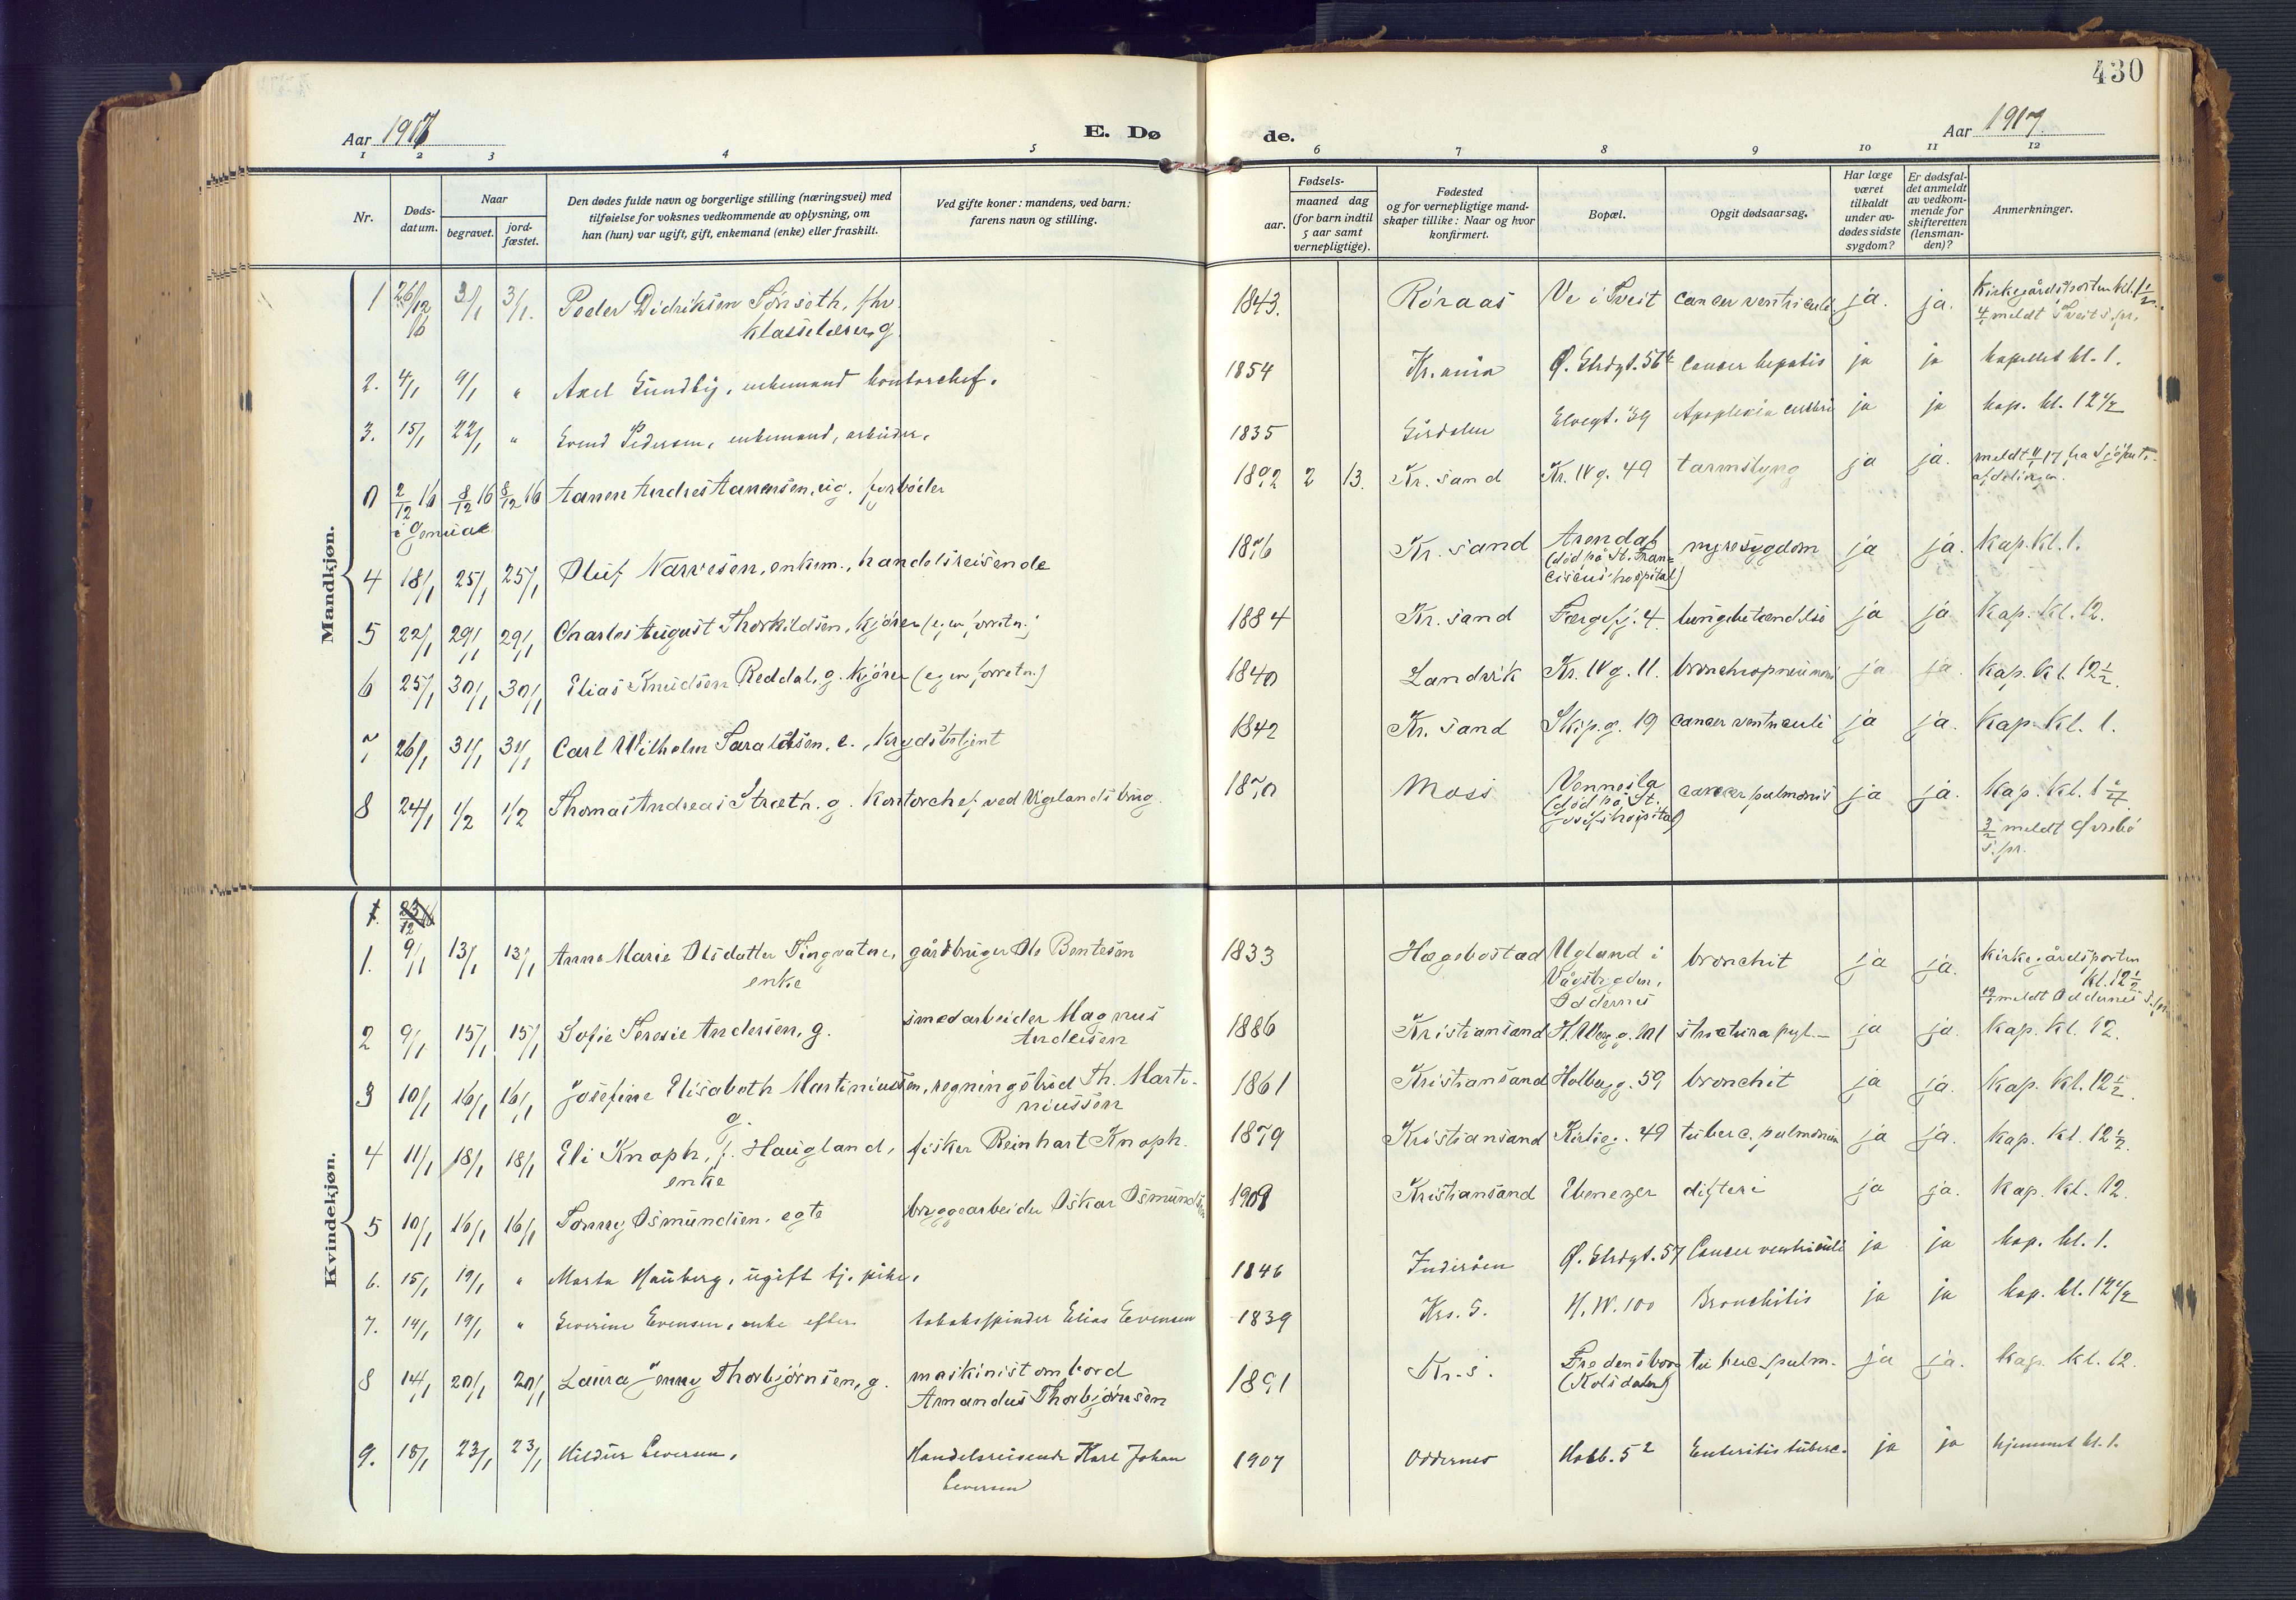 430
Aar 1917
E. Dø
de.
Aar 1917.
1 2 3 4 5 6 7 8 9 10 11 12
Nr.
Døds-
datum.
Naar
begravet.
jord-
fæstet.
Den dødes fulde navn og borgerlige stilling (næringsvei) med
tilføielse for voksnes vedkommende av oplysning, om
han (hun) var ugift, gift, enkemand (enke) eller fraskilt.
Ved gifte koner: mandens, ved barn:
farens navn og stilling.
Fødsels-
aar.
maaned dag
(for barn indtil
5 aar samt
vernepligtige).
Fødested
og for vernepligtige mand-
skaper tillike: Naar og hvor
konfirmert.
Bopæl.
Opgit dødsaarsag.
Har læge
været
tilkaldt
under av-
dødes sidste
sygdom?
Er dødsfal-
det anmeldt
av vedkom-
mende for
skifteretten
(lensman-
den)?
Anmerkninger.
Mandkjøn.
1 26/12 16 3/1 3/1. Peder Didriksen Tønseth, fhv. klasselærer, g. 1843. Røraas Ve i Tveit cancer ventriculi ja. ja. Kirkegårdsporten kl. 1 1/2.
4/1 meldt Tveit s.pr.
2. 4/1 9/1 " Axel Sundby, enkemand kontorchef. 1854 Kr.ania Ø. Strdgt. 56 cancer hepatis ja ja kapellet kl. 1.
3. 15/1 22/1 " Svend Pedersen, enkemand, arbeider. 1835 Sirdalen Elvegt. 39 Apoplexia cerebri ja ja kap. kl. 12 1/2
0 2/12 16 8/12 16 8/12 16 Aanen Andreas Aanensen, ug. fyrbøder 1892 2 13. Kr.sand Kr. IV g. 49 tarmslyng ja ja. meldt 4/1 17 fra Sjøfarts-
i Genua afdelingen.
4 18/1 25/1 25/1 Oluf Narvesen, enkem., handelsreisende 1876 Kr.sand Arendal nyresygdom ja ja. Kap. kl. 1.
(død på St. Fran-
ciscus' hospital)
5 22/1 29/1 29/1 Charles August Thorkildsen, kjører (egen forretn.) 1884 Kr.sand Færgefj. 4. lungebetændelse ja ja Kap. kl. 12.
6 25/1 30/1 30/1 Elias Knudsen Reddal, g. kjører (egen forretn.) 1840 Landvik Kr. IV g. 11. bronchopneumoni ja ja. Kap. kl 12 1/2.
7 26/1 31/1 31/1 Carl Wilhelm Saraldsen, e., krydsbetjent 1842 Kr.sand Skip.g. 19 cancer ventriculi ja ja. Kap. kl. 1.
8 24/1 1/2 1/2 Thomas Andreas Stræth. g. Kontorchef ved Vigelands brug. 1870 Moss Vennesla cancer pulmonis ja ja. Kap. kl. 1
(død på St. Josefs hospital) 3/2 meldt Øvrebø
s.pr.
Kvindekjøn.
1. 23/12 16
1. 9/1 13/1 13/1 Anne Marie Olsdatter Tingvatne, enke gårdbruger Ole Bentesen 1833 Hægebostad Ugland i Vågsbygden, Oddernes bronchit ja ja. Kirkegårdsporten kl. 12 1/2
meldt Oddernes s.pr.
2 9/1 15/1 15/1 Sofie Teresie Andersen, g. smedarbeider Magnus Andersen 1886 Kristiansand strictura pyl.- ja ja. Kap. kl. 12.
3 10/1 16/1 16/1 Josefine Elisabeth Martiniussen, g. regningsbud Th. Marti-
niussen 1861 Kristiansand Holbergg. 59 bronchit ja ja. Kap. kl. 12 1/2.
4 11/1 18/1 18/1 Eli Knoph, f. Haugland, enke fisker Reinhart Knoph. 1879 Kristiansand Kirkeg. 49 tuberc. pulmonum ja ja. Kap. kl. 12 1/2.
5 10/1 16/1 16/1 Sonny Osmundsen, egte bryggearbeider Oskar Osmundsen 1909 Kristiansand Ebenezer difteri ja ja. Kap. kl. 12.
6. 15/1 19/1 " Marta Hauberg, ugift tj. pike. 1846 Inderøen Ø. Strdgt. 57 Cancer ventriculi ja ja kap. kl. 1.
7. 14/1 19/1 " Severine Evensen, enke efter tobakspinder Elias Evensen 1839 Krs. S. H.W. 100 Bronchitis ja ja kap. kl. 12 1/2
8 14/1 20/1 20/1 Laura Jenny Thorbjørnsen, g. maskinist ombord
Amandus Thorbjørnsen 1891 Kr.s. Fredensborg (Kolsdalen) tuberc. pulm. ja ja. Kap. kl. 12.
9. 18/1 23/1 23/1 Hildur Seversen, Handelsreisende Karl Johan
Seversen 1907 Oddernes Holb. 52 Enteritis tuberc. ja ja hjemmet kl. 1.